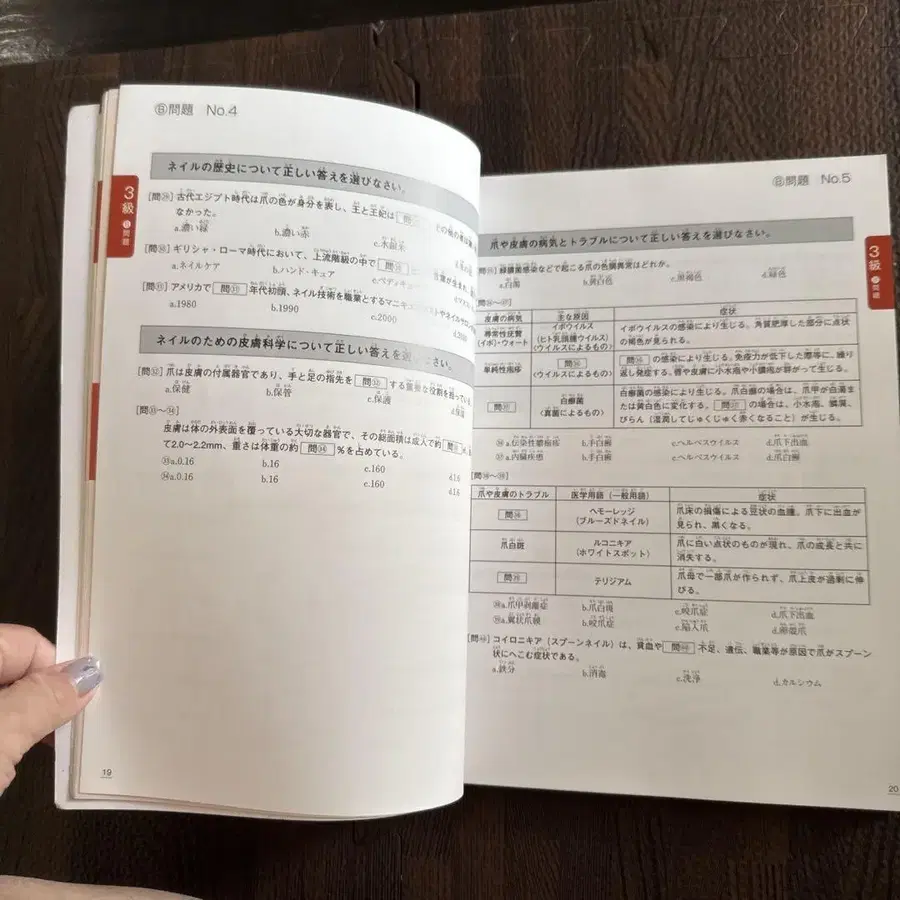 Ⓑ問題 No.4
ネイルの歴史について正しい答えを選びなさい。
[問㉙] 古代エジプト時代は爪の色が身分を表し、王と王妃は
なかった。
a.濃い緑 b.濃い赤
[問㉚] ギリシャ・ローマ時代において、上流階級の中で 問㉚
a.ネイルケア b.ハンド・キュア
[問㉛] アメリカで 問㉛ 年代初頭、ネイル技術を職業とするマニキュ
a.1980 b.1990 c.2000
ネイルのための皮膚科学について正しい答えを選 なさい。
[問㉜] 爪は皮膚の付属器官であり、手と足の指先を 問㉜ する重要な役割を担ってい
a.保健 b.保管 c.保護 d.保湿
[問㉝~㉞]
皮膚は体の外表面を覆っている大切な器官で、その総面積は成人で約
て2.0~2.2mm、重さは体重の約 問㉞ %を占めている。
㉝a.0.16 b.16 c.160 d.1.6
㉞a.0.16 b.16 c.160 d.1.6
19
3級 Ⓑ問題
Ⓑ問題 No.5
爪や皮膚の病気とトラブルについて正しい答えを選びなさい。
[問㉟] 緑膿菌感染などで起こる爪の色調異常はどれか。
a.白濁 b.黄白色 c.黒褐色 d.緑色
[問㊱~㊲]
皮膚の病気 主な原因 症状
尋常性疣贅(イボ)・ウォート イボウイルス(ヒト乳頭腫ウイルス)(ウイルスによるもの) イボウイルスの感染により生じる。角質肥厚した部分に点状の褐色が見られる。
単純性疱疹 問㊱(ウイルスによるもの) 問㊱ の感染により生じる。免疫力が低下した際等に、繰り返し発症する。唇や皮膚に小水疱や小膿疱が群がって生じる。
問㊲ 白癬菌(真菌によるもの) 白癬菌の感染により生じる。爪白癬の場合は、爪甲が白濁または黄白色に変化する。 問㊲ の場合は、小水疱、鱗屑、びらん(湿潤してじゅくじゅく赤くなること)が生じる。
㊱a.伝染性膿痂疹 b.手白癬 c.ヘルペスウイルス d.爪下出血
㊲a.内臓疾患 b.手白癬 c.ヘルペスウイルス d.爪白癬
[問㊳~㊴]
爪や皮膚のトラブル 医学用語(一般用語) 症状
問㊳ ヘモーレッジ(ブルーズドネイル) 爪床の損傷による豆状の血腫。爪下に出血が見られ、黒くなる。
爪白斑 ルコニキア(ホワイトスポット) 爪に白い点状のものが現れ、爪の成長と共に消失する。
問㊴ テリジアム 爪母で一部爪が作られず、爪上皮が過剰に伸びる。
㊳a.爪甲剥離症 b.爪白斑 c.咬爪症 d.爪下出血
㊴a.翼状爪膜 b.咬爪症 c.陥入爪 d.卵殻爪
[問㊵] コイロニキア(スプーンネイル)は、貧血や 問㊵ 不足、遺伝、職業等が原因で爪がスプーン
状にへこむ症状である。
a.鉄分 b.消毒 c.洗浄 d.カルシウム
20
3級 Ⓑ問題